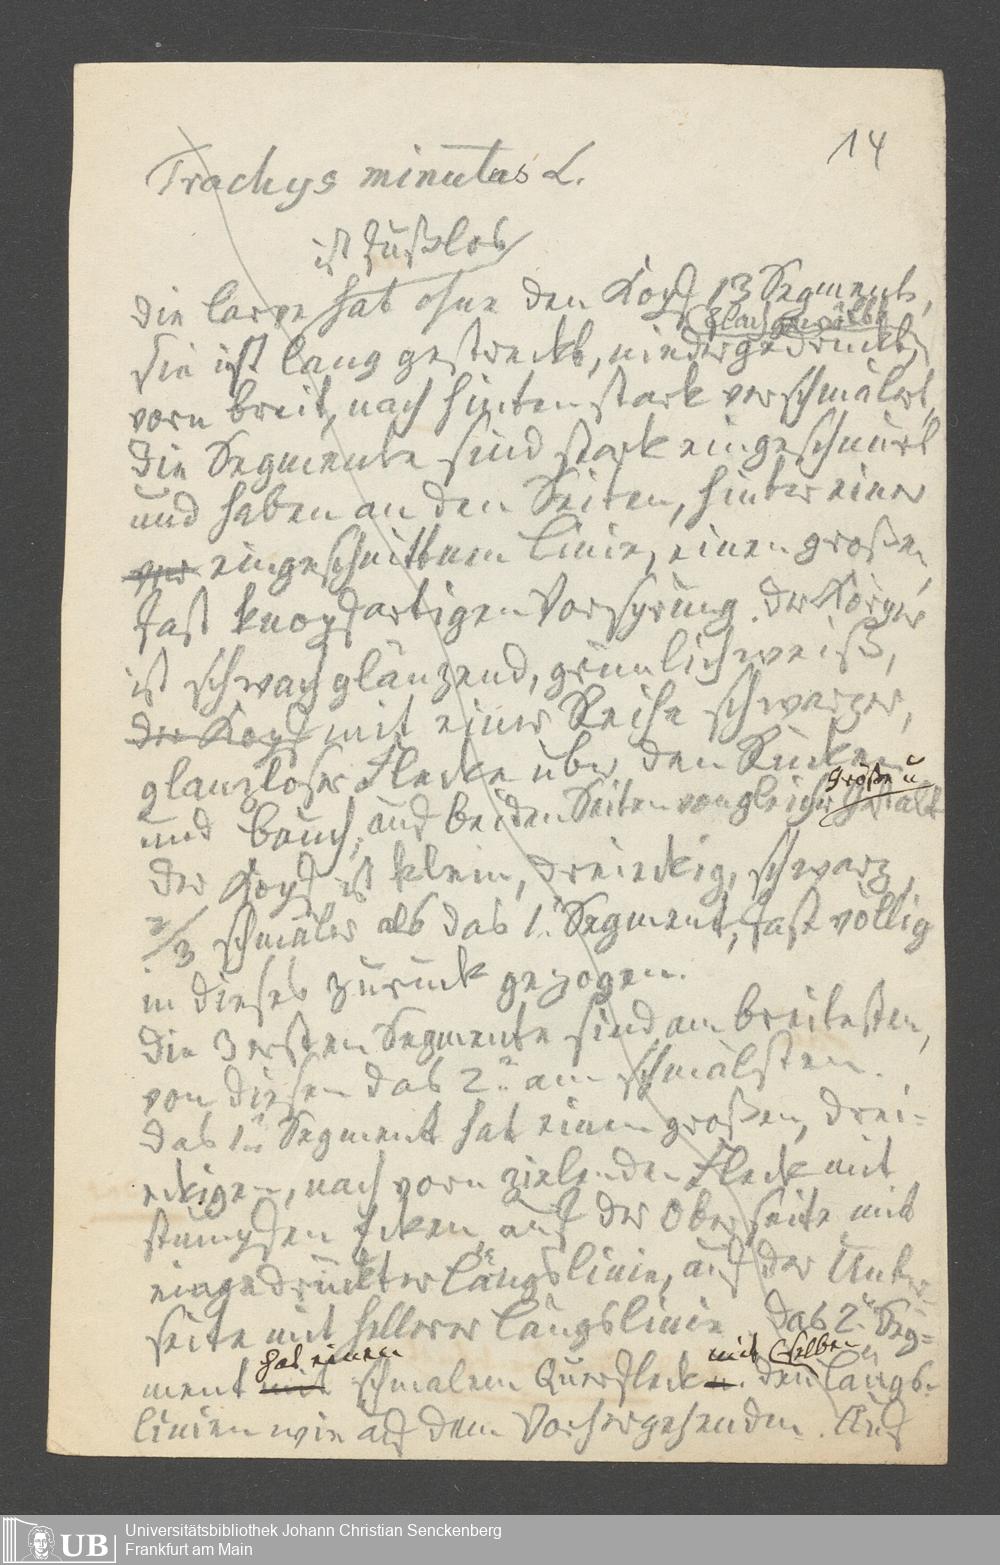 14
Trachys minutus L.
ist fußlos,
die larve hat ohne den Kopf 13 Segmente,
flach gewölbt
sie ist lang gestreckt, niedergedrückt,
vorn breit, nach hinten stark verschmälert,
die Segmente sind stark eingeschnürt
und haben an den Seiten, hinter einer
eingeschnittnen Linie, einen großen,
fast knopfartigen Vorsprung. der Körper
ist schwach glänzend, grünlichweiß,
der Kopf mit einer Reihe schwarzer,
glanzloser Flecke über den Rücken
größe u
und bauch, auf beiden Seiten von gleicher gestalt
der Kopf ist klein, dreieckig, schwarz,
2/3 schmäler als das 1. Segment, fast völlig
in dieses zurück gezogen.
die 3 ersten Segmente sind am breitesten,
von diesen das 2. am schmälsten.
das 1. Segment hat einen großen, drei-
eckigen, nach vorn zielenden Fleck mit
stumpfen Ecken, auf der Oberseite mit
eingedrückter Längslinie, auf der Unter-
seite mit hellerer Längslinie das 2. Seg-
hat einen mit denselben
ment mit schmalem Querfleck u. den Längs-
linien wie auf dem Vorhergehenden. Auf
UB
Universitätsbibliothek Johann Christian Senckenberg
Frankfurt am Main